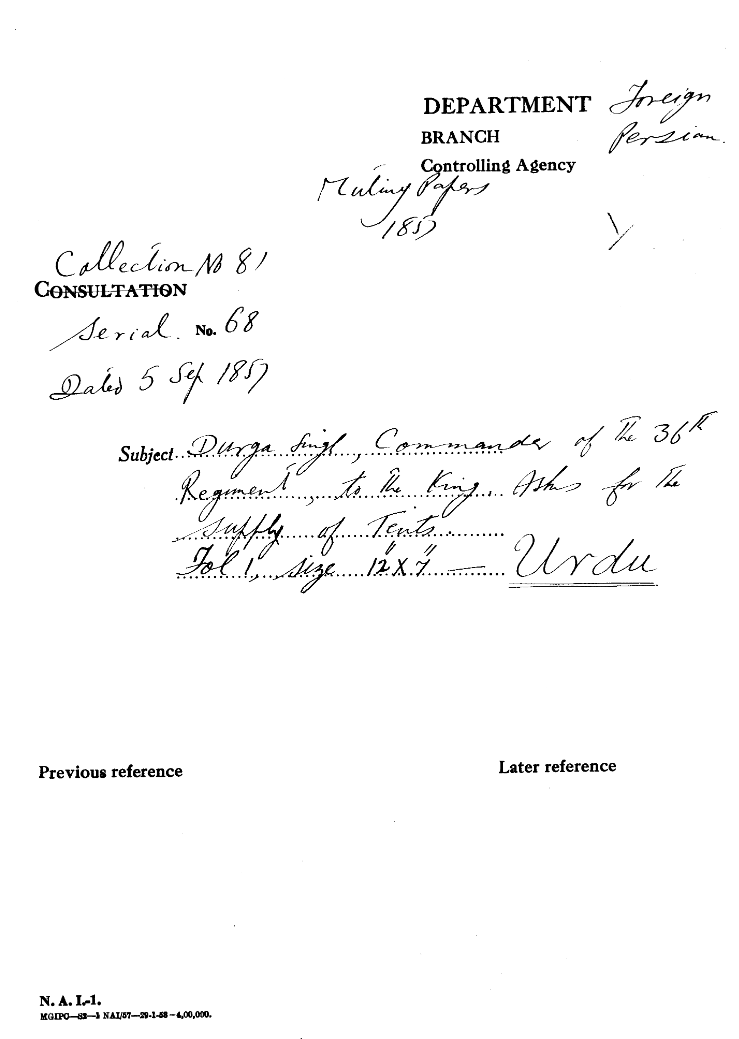 DEPARTMENT Foreign
BRANCH Persian.
Controlling Agency
Mutiny Papers
1857
Collection No 81
CONSULTATION
Serial. No. 68
Dated 5 Sep 1857
Subject Durga Singh, Commander of the 36th
Regiment, to the King. Asks for the
supply of Tents
Fol 1, size 12" X 7" — Urdu
Previous reference
Later reference
N. A. I.-1.
MGIPC—S2—1 NAI/57—29-1-58—4,00,000.